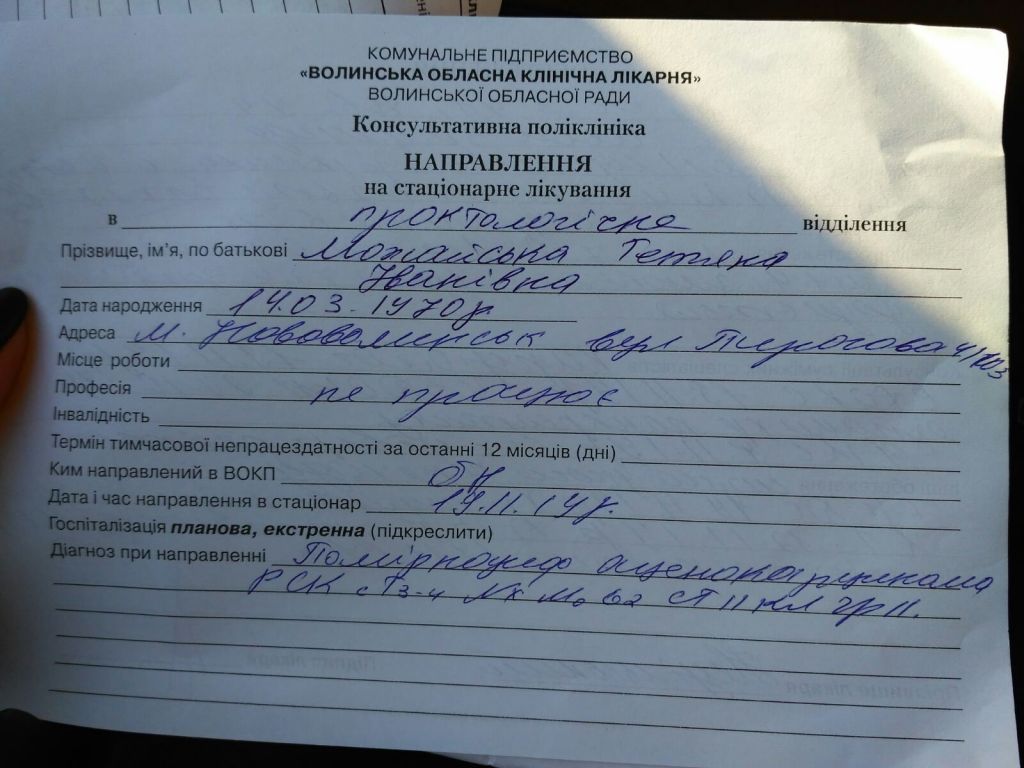 КОМУНАЛЬНЕ ПІДПРИЄМСТВО
«ВОЛИНСЬКА ОБЛАСНА КЛІНІЧНА ЛІКАРНЯ»
ВОЛИНСЬКОЇ ОБЛАСНОЇ РАДИ
Консультативна поліклініка
НАПРАВЛЕННЯ
на стаціонарне лікування
в проктологічне відділення
Прізвище, ім’я, по батькові Можайська Тетяна
Іванівна
Дата народження 14.03.1970р
Адреса м. Нововолинськ вул Пирогова 4/103
Місце роботи
Професія не працює
Інвалідність
Термін тимчасової непрацездатності за останні 12 місяців (дні)
Ким направлений в ВОКП
Дата і час направлення в стаціонар 19.11.19р.
Госпіталізація планова, екстренна (підкреслити)
Діагноз при направленні Помірнодиф аденокарцинома
РСК cT3-4 Nx M0 G2 СТ II кл гр II.